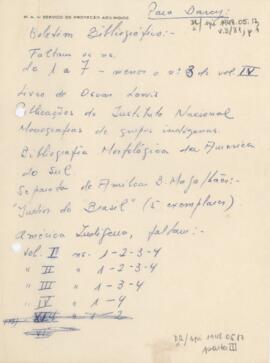 M. A. - SERVIÇO DE PROTEÇÃO AOS ÍNDIOS
Para Darcy:
Boletim Bibliográfico:-
Faltam os ns.
do 1 a 7 - menos o nº 3 do vol IV
Livro de Oscar Lewis
Publicações do Instituto Nacional
Monografias de grupos indígenas.
Bibliografia Morfológica da America
do Sul.
Separata de Amilcar B. Magalhães:-
"Índios do Brasil" (5 exemplares).
América Indígena, faltam:-
vol. I ns. 1-2-3-4
" II " 1-2-3-4
" III " 1-2-3-4
" IV " 1-4
" 1-2
VI